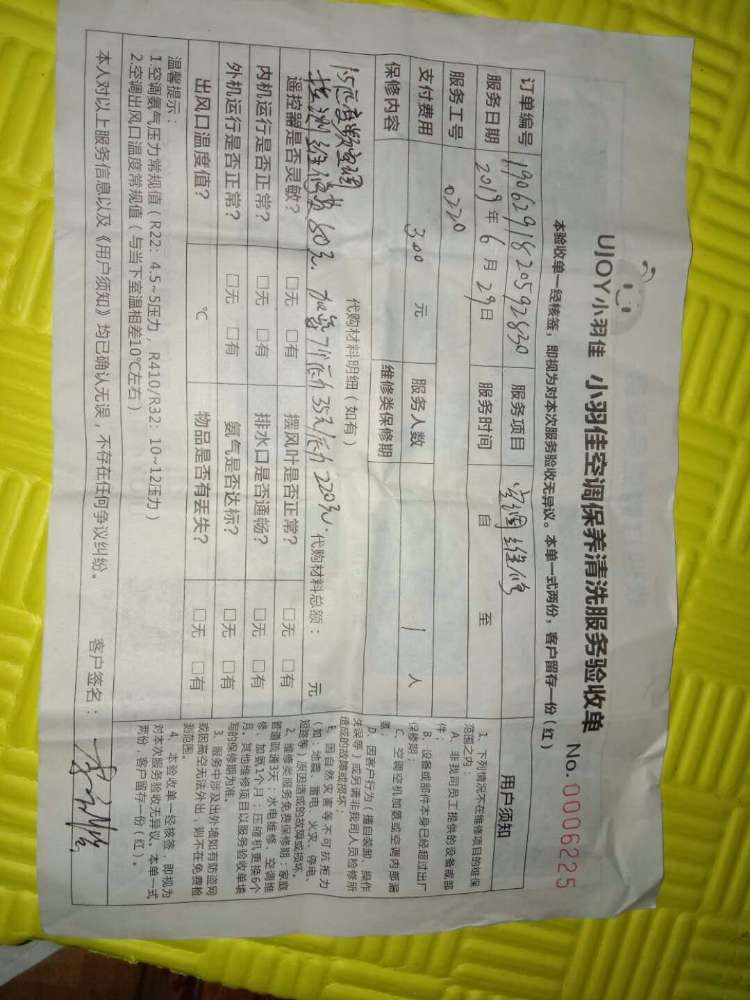 UJOY小羽佳 小羽佳空调保养清洗服务验收单 No.0006225
本验收单一经核签，即视为对本次服务验收无异议。本单一式两份，客户留存一份（红）
订单编号 1906291820592830 服务项目 空调维修
服务日期 2019年6月29日 服务时间 自 至
服务工号 0220
支付费用 300 元 服务人数 1 人
保修内容 维修类保修期
代购材料明细（如有）
检测维修费80元. 加氟 220元. 代购材料总额： 元
遥控器是否灵敏？ □无 □有 摆风叶是否正常？ □无 □有
内机运行是否正常？ □无 □有 排水口是否通畅？ □无 □有
外机运行是否正常？ □无 □有 氨气是否达标？ □无 □有
出风口温度值？ ℃ 物品是否有丢失？ □无 □有
温馨提示：
1.空调氨气压力常规值（R22：4.5~5压力，R410/R32：10~12压力）
2.空调出风口温度常规值（与当下室温相差10℃左右）
本人对以上服务信息以及《用户须知》均已确认无误，不存在任何争议纠纷。 客户签名：
用户须知
1、下列情况不在维修项目的维保
范围之内：
A、非我司员工提供的设备或部
件；
B、设备或部件本身已经超过出厂
保修期；
C、空调空机加氨或空调内部漏
D、因客户行为（擅自装卸、操作
失误等）或另请非我司人员检修所
造成的故障或损坏；
E、因自然灾害等不可抗拒力
（如：地震、雷电、火灾、停电、
短路等）原因造成的故障或损坏。
2、维修类服务免费保修期：家庭
管道疏通3天；水电维修、空调维
修、加氨1个月；压缩机更换6个
月；其他维修项目以服务验收单填
写的保修期为准。
3、服务中涉及出外墙如有防盗网
或因高空无法外出，则不在免费检
测范围。
4、本验收单一经核签，即视为
对本次服务验收无异议。本单一式
两份，客户留存一份（红）。